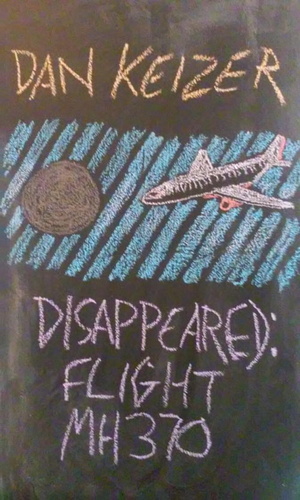 DAN KEIZER
DISAPPEARED:
FLIGHT
MH370